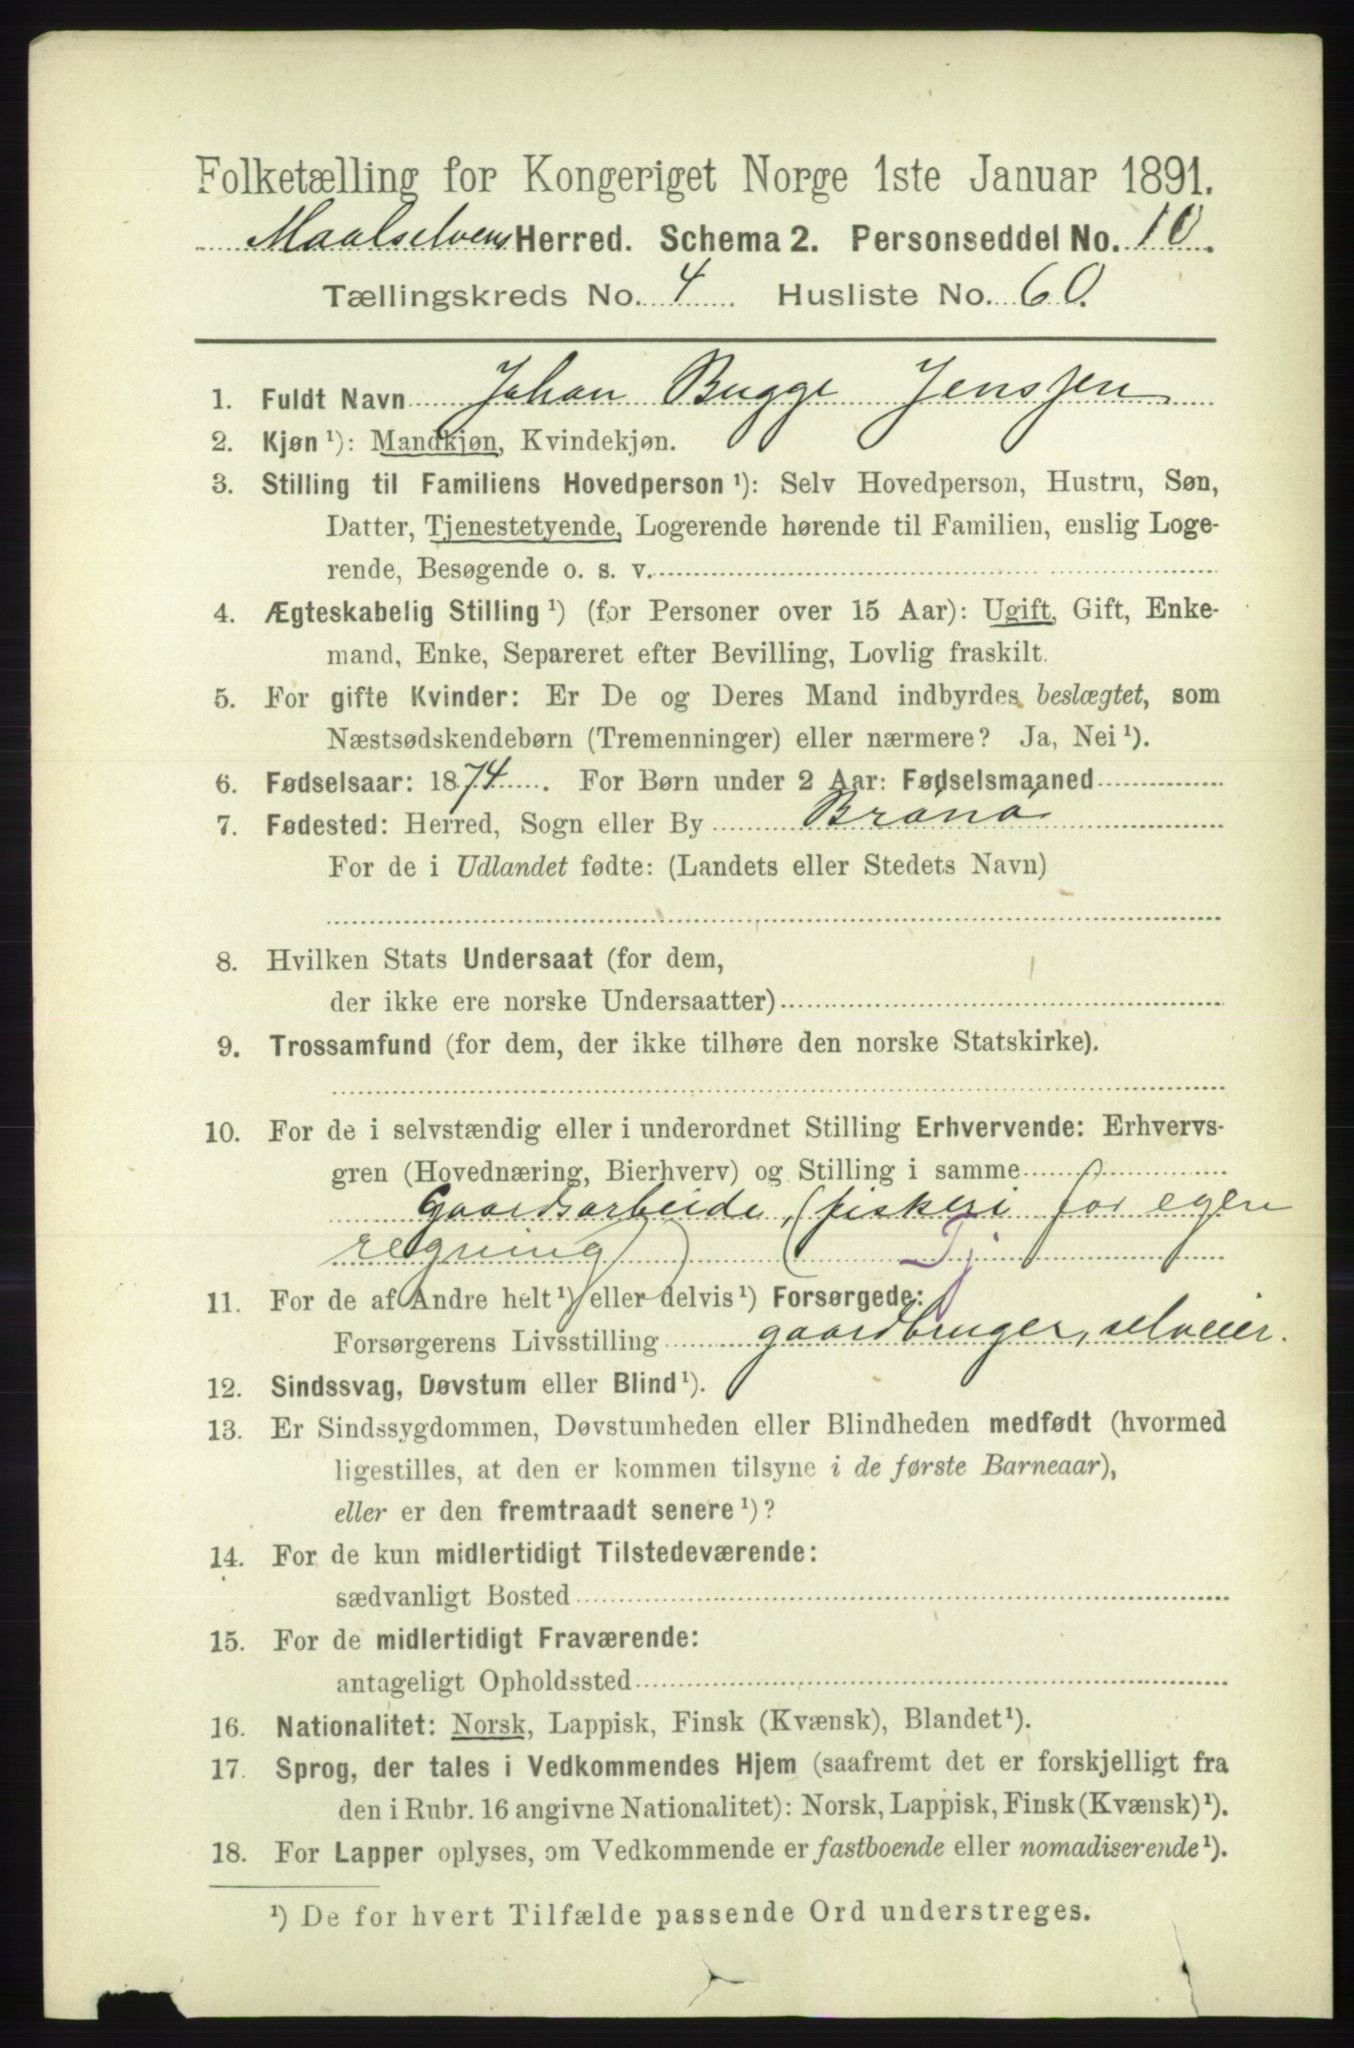 Folketælling for Kongeriget Norge 1ste Januar 1891.
Maalselvens Herred. Schema 2. Personseddel No. 10.
Tællingskreds No. 4 Husliste No. 60.
1. Fuldt Navn Johan Bugge Jenssen
2. Kjøn ¹): Mandkjøn, Kvindekjøn.
3. Stilling til Familiens Hovedperson ¹): Selv Hovedperson, Hustru, Søn,
Datter, Tjenestetyende, Logerende hørende til Familien, enslig Loge-
rende, Besøgende o. s. v.
4. Ægteskabelig Stilling ¹) (for Personer over 15 Aar): Ugift, Gift, Enke-
mand, Enke, Separeret efter Bevilling, Lovlig fraskilt.
5. For gifte Kvinder: Er De og Deres Mand indbyrdes beslægtet, som
Næstsødskendebørn (Tremenninger) eller nærmere? Ja, Nei ¹).
6. Fødselsaar: 1874. For Børn under 2 Aar: Fødselsmaaned
7. Fødested: Herred, Sogn eller By Brønø
For de i Udlandet fødte: (Landets eller Stedets Navn)
8. Hvilken Stats Undersaat (for dem,
der ikke ere norske Undersaatter)
9. Trossamfund (for dem, der ikke tilhøre den norske Statskirke).
10. For de i selvstændig eller i underordnet Stilling Erhvervende: Erhvervs-
gren (Hovednæring, Bierhverv) og Stilling i samme
Gaardsarbeide, (fiskeri for egen
regning) Tj
11. For de af Andre helt ¹) eller delvis ¹) Forsørgede:
Forsørgerens Livsstilling gaardbruger, selveier.
12. Sindssvag, Døvstum eller Blind ¹).
13. Er Sindssygdommen, Døvstumheden eller Blindheden medfødt (hvormed
ligestilles, at den er kommen tilsyne i de første Barneaar),
eller er den fremtraadt senere ¹)?
14. For de kun midlertidigt Tilstedeværende:
sædvanligt Bosted
15. For de midlertidigt Fraværende:
antageligt Opholdssted
16. Nationalitet: Norsk, Lappisk, Finsk (Kvænsk), Blandet ¹).
17. Sprog, der tales i Vedkommendes Hjem (saafremt det er forskjelligt fra
den i Rubr. 16 angivne Nationalitet): Norsk, Lappisk, Finsk (Kvænsk) ¹).
18. For Lapper oplyses, om Vedkommende er fastboende eller nomadiserende ¹).
¹) De for hvert Tilfælde passende Ord understreges.